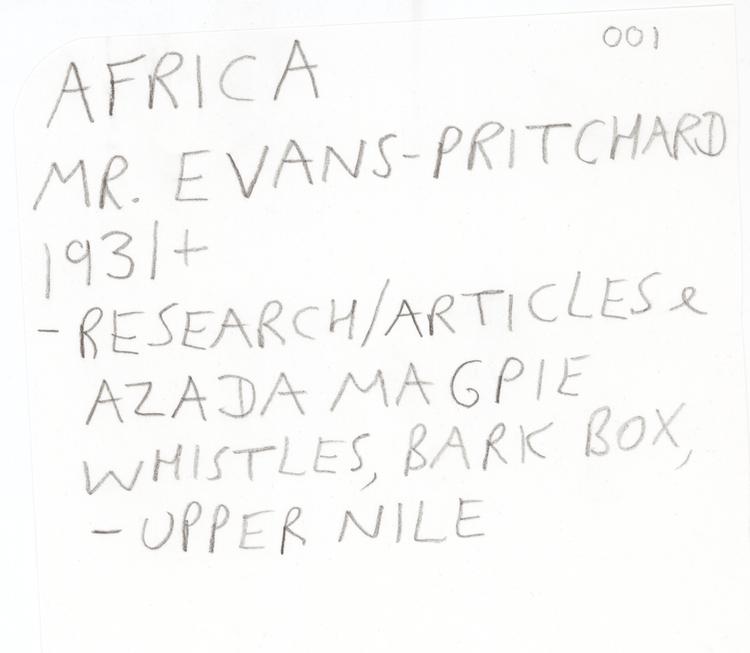 001
AFRICA
MR. EVANS-PRITCHARD
1931+
- RESEARCH/ARTICLES &
AZADA MAGPIE
WHISTLES, BARK BOX,
- UPPER NILE